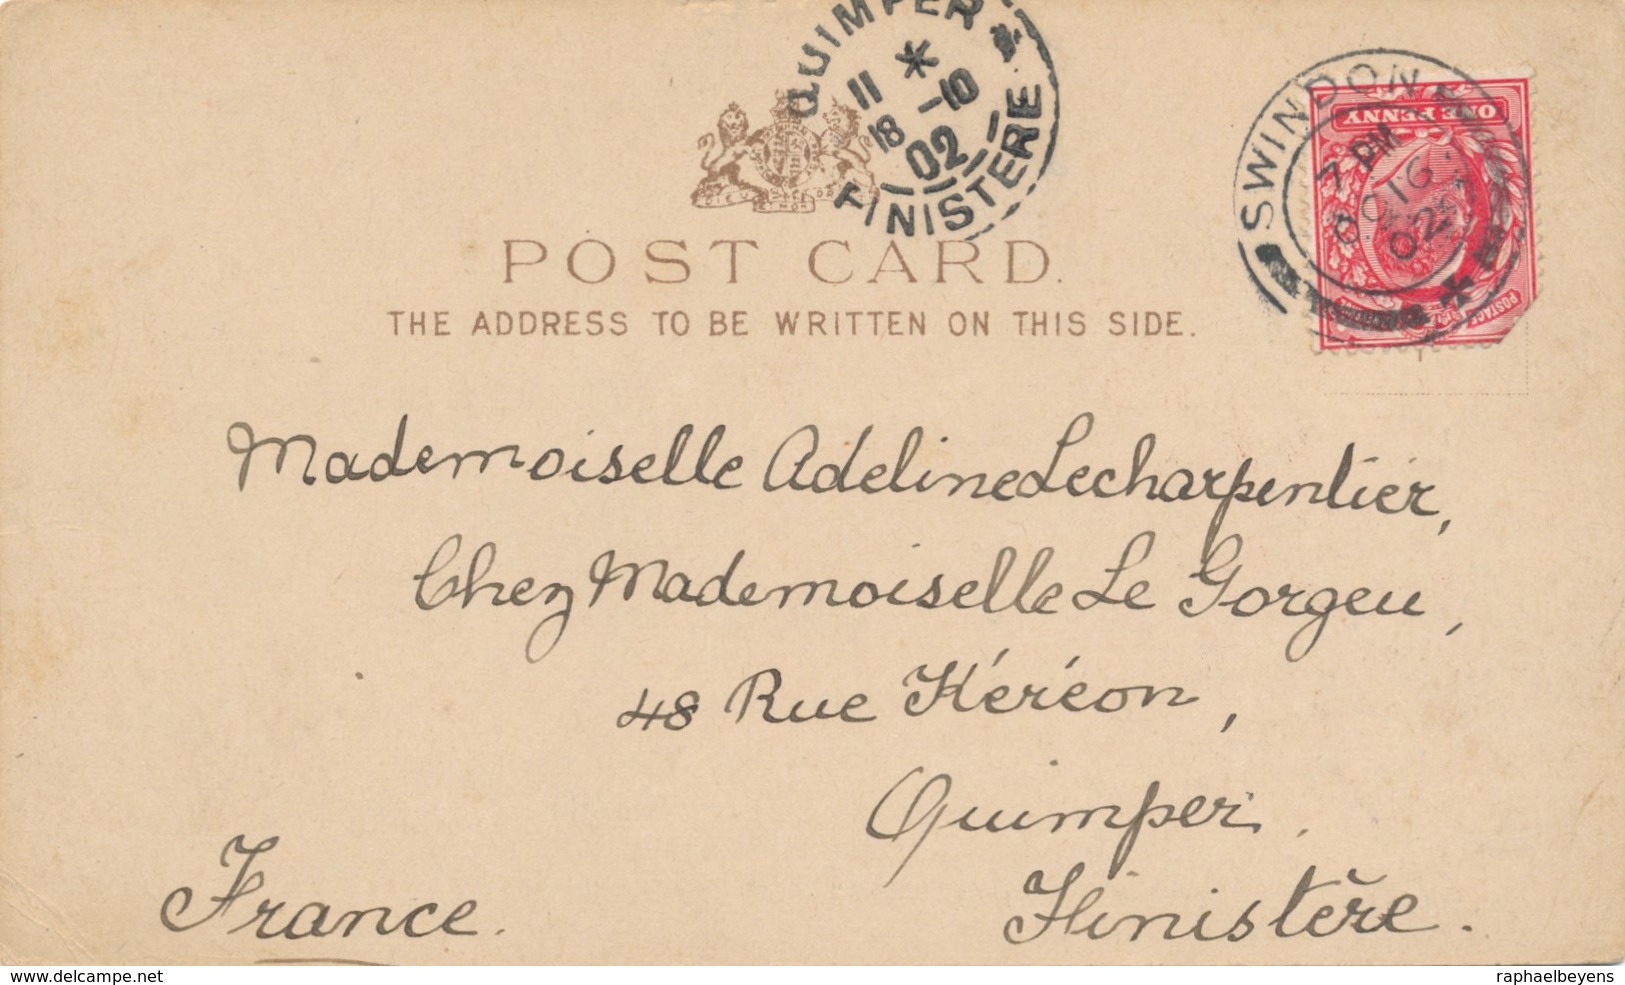 QUIMPER
11 *
18 -10
02
FINISTERE
SWINDON
7 PM
OC 16
02
ONE PENNY
POST CARD.
THE ADDRESS TO BE WRITTEN ON THIS SIDE.
Mademoiselle Adeline Lecharpentier,
Chez Mademoiselle Le Gorgeu,
48 Rue Kéréon,
Quimper.
Finistère.
France.
www.delcampe.net
raphaelbeyens